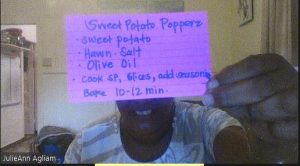 Sweet Potato Popperz
· sweet potato
· Hawn. Salt
· Olive Oil
· Cook SP, Slices, add seasoning
Bake 10-12 min.
JulieAnn Agliam